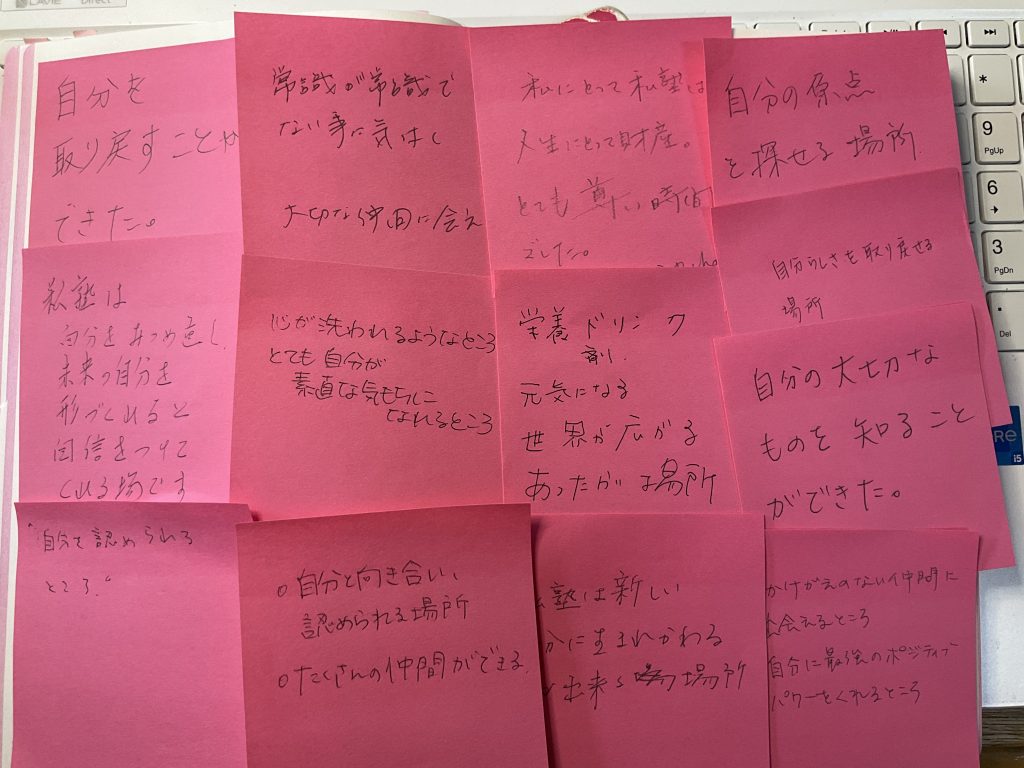 自分を
取り戻すことが
できた。
常識が常識で
ない事に気はく
大切な仲間に会え
私にとって私塾は
人生にとって財産。
とても尊い時間
でした。
自分の原点
を探せる場所
自分らしさを取り戻せる
場所
私塾は
自分をみつめ直し、
未来の自分を
形づくれると
自信をつけて
くれる場です
心が洗われるようなところ
とても自分が
素直な気もちに
なれるところ
栄養ドリンク
剤。
元気になる
世界が広がる
あったかい場所
自分の大切な
ものを知ること
ができた。
"自分を認められる
ところ"
○自分と向き合い、
認められる場所
○たくさんの仲間ができる
塾は新しい
分に生まれかわる
出来る場所
かけがえのない仲間に
出会えるところ
自分に最強のポジティブ
パワーをくれるところ
LAVIE Direct
*
9
PgUp
6
3
PgDn
Del
i5